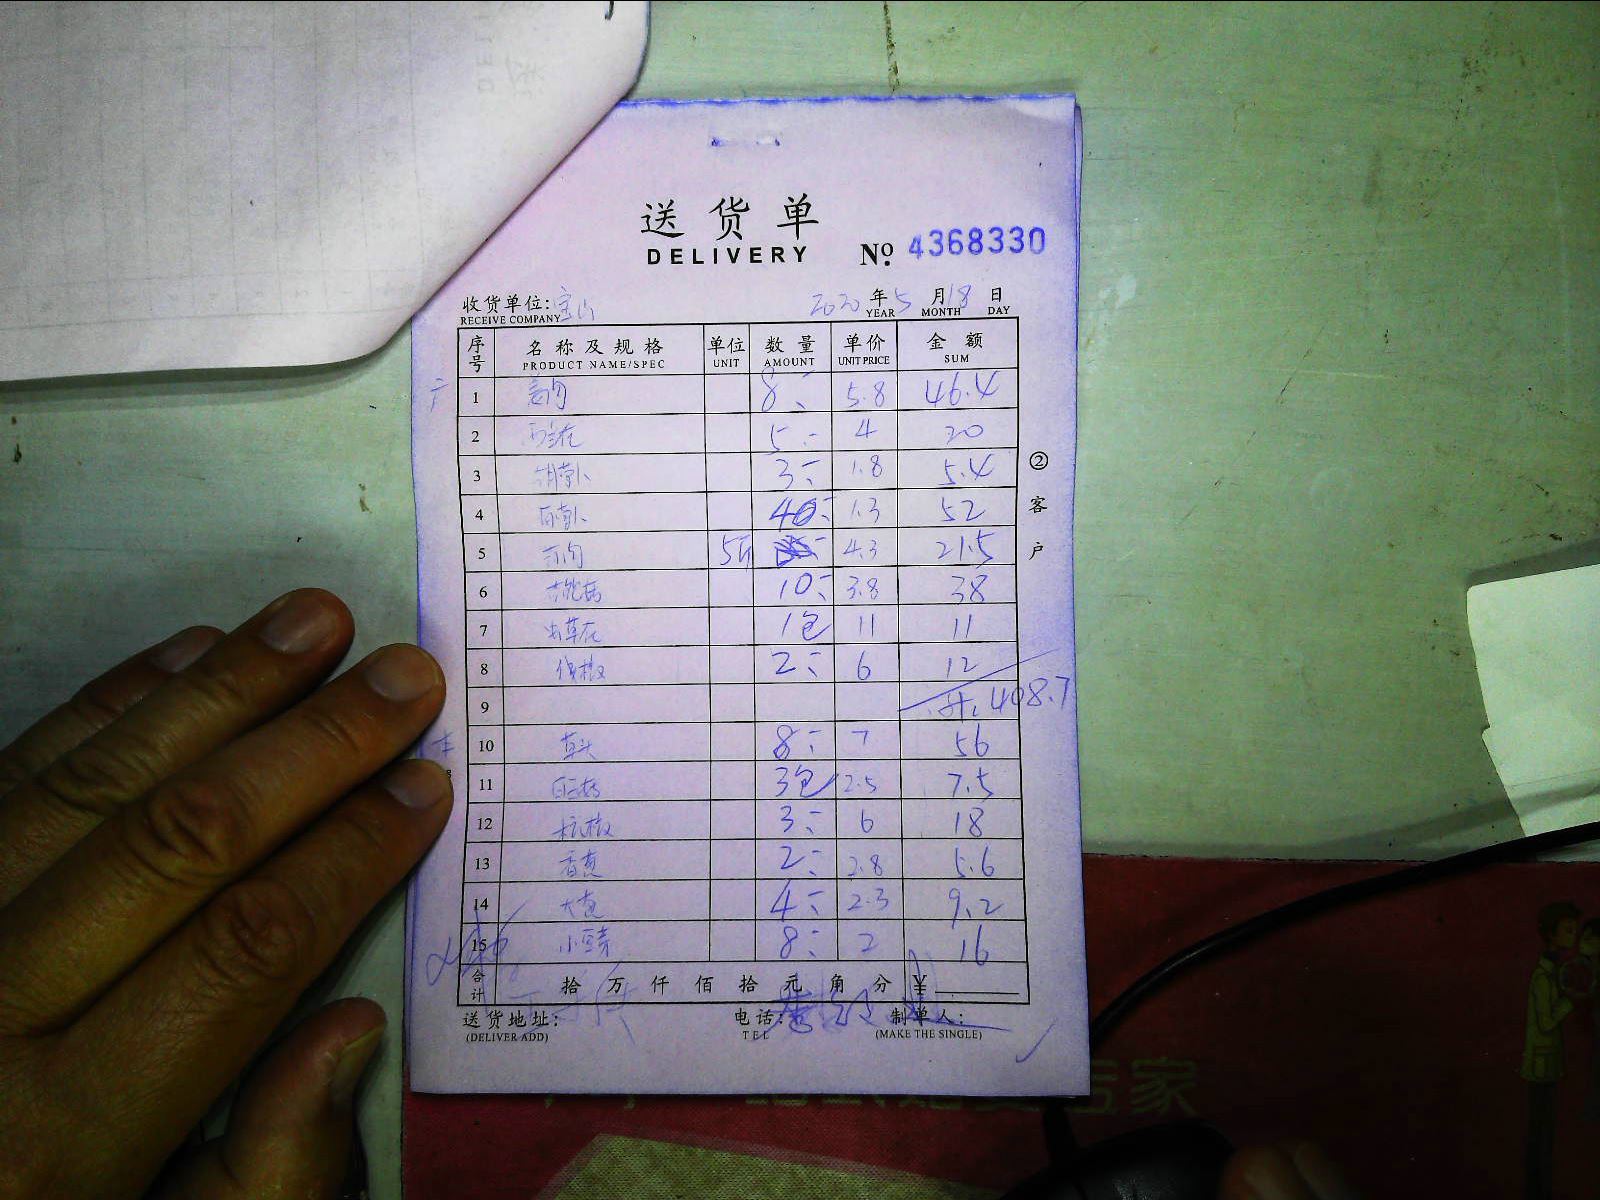 送货单
DELIVERY
Nº 4368330
收货单位: 宝山 2020 年 5 月 18 日
RECEIVE COMPANY YEAR MONTH DAY
序号 名称及规格 单位 数量 单价 金额
PRODUCT NAME/SPEC UNIT AMOUNT UNIT PRICE SUM
1 8 5.8 46.4
2 西兰花 5 4 20
3 胡萝卜 3 1.8 5.4
4 白萝卜 40 1.3 52
5 5斤 4.3 21.5
6 10 3.8 38
7 虫草花 1包 11 11
8 2 6 12
9 408.7
10 草头 8 7 56
11 3包 2.5 7.5
12 杭椒 3 6 18
13 香葱 2 2.8 5.6
14 大葱 4 2.3 9.2
15 小豆芽 8 2 16
合计 拾 万 仟 佰 拾 元 角 分 ¥
送货地址: 电话: 制单人:
(DELIVER ADD) TEL (MAKE THE SINGLE)
②客户
家